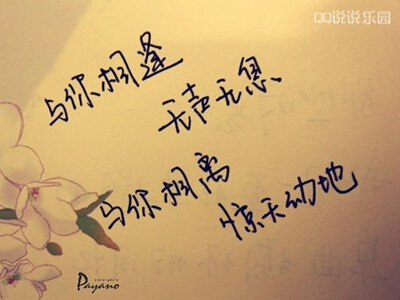 QQ说说乐园
与你相逢
无声无息
与你相离
惊天动地
Payano